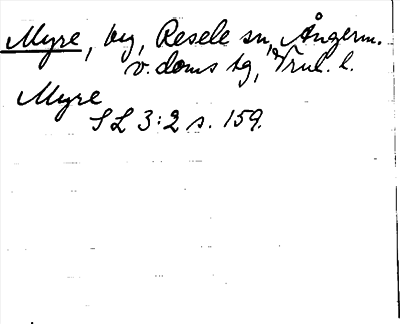 Myre, by, Resele sn, Ångerm.
v. doms sg, Vnl. l.
Myre
SL 3:2 s. 159.